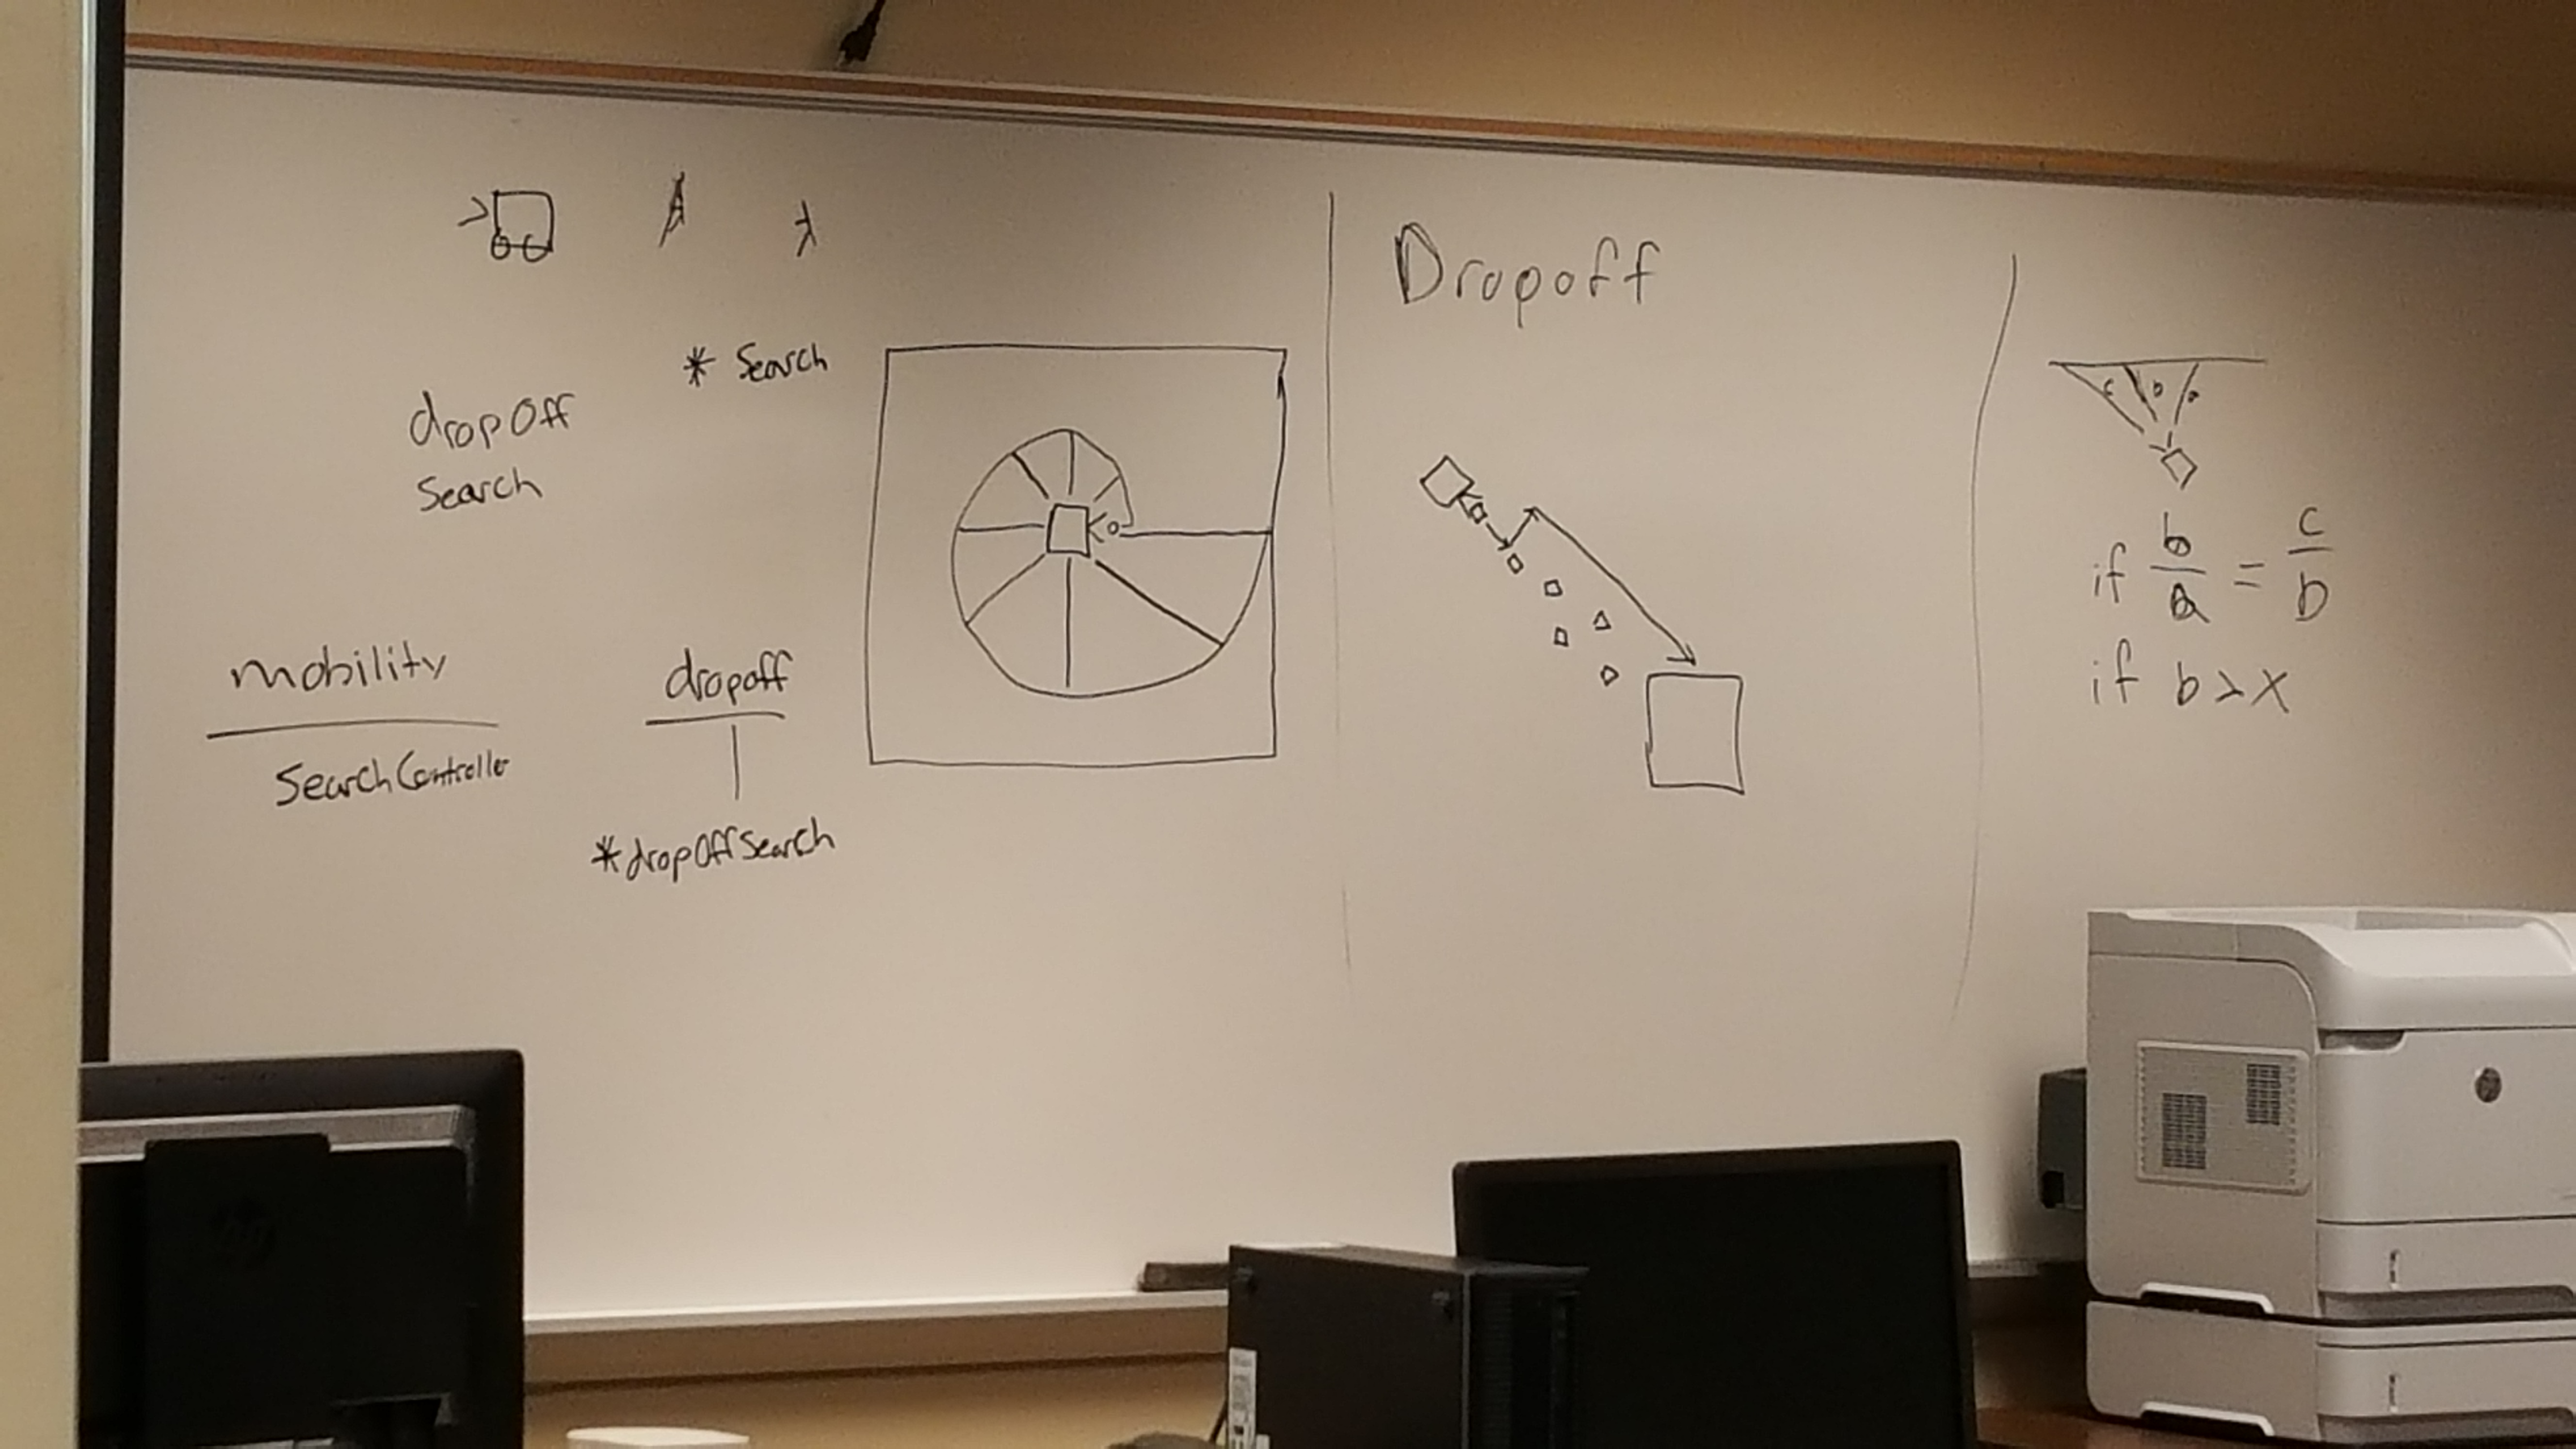 * Search
dropOff
Search
mobility
SearchController
dropoff
*dropOffSearch
Dropoff
c b a
if b/a = c/b
if b > x
hp